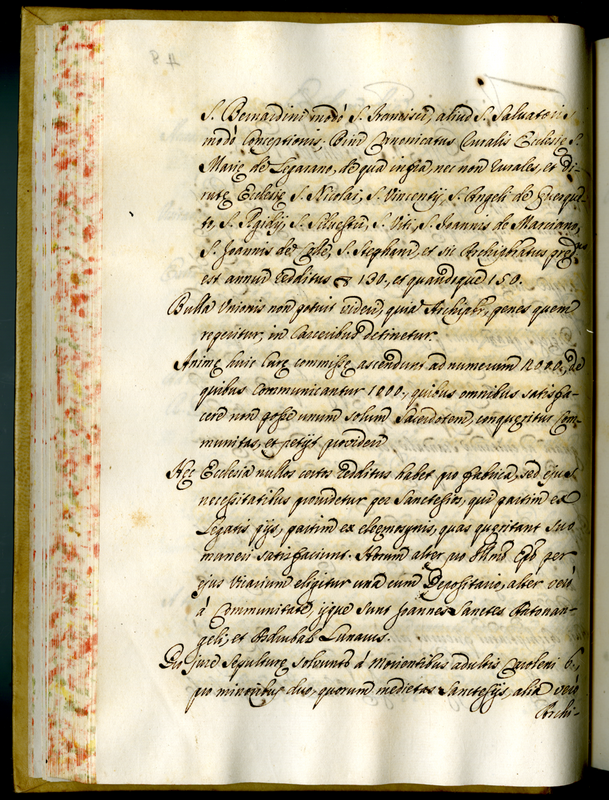 S. Bernardini modò S. Francisci, aliud S. Salvatoris
modò Conceptionis. Bina Canonicatus Curalis Ecclesiæ S.
Mariæ de Legarano, de qua infra, nec non rurales, et di-
rutæ Ecclesiæ S. Nicolai, S. Vincentij, S. Angeli de Querque-
to, S. Ægidij, S. Silvestri, S. Viti, S. Joannis de Marciano,
S. Joannis de Colle, S. Stephani, et sic Archipbratus præd.us
est annui redditus 130., et quandoque 150.
Bulla Unionis non potuit videri, quia Archipbr, penes quem
reperitur, in Carceribus detinetur.
Animæ huic Curæ commissæ ascendunt ad numerum 12000., de
quibus Communicantur 1800., quibus omnibus satisfa-
cere non posse unum solum Sacerdotem, conqueritur Com-
munitas, et petijt provideri
Hæc Ecclesia nullos certos redditus habet pro fabrica, sed ejus
necessitatibus providetur per Sanctesios, qui partim ex
Legatis pijs, partim ex eleemosynis, quas quæritant suo
muneri satisfaciunt. Horum alter pro Illmo Epo per
ejus Vicarium eligitur una cum Depositario, alter verò
à Communitate, ijque sunt Joannes Sanctes Antonan-
geli, et Asdrubal Lunavis.
Pro jure sepulturæ solvuntr à Morientibus adultis Caroleni 6.,
pro minoribus duo, quorum medietas Sanctesijs, alia verò
Archi-